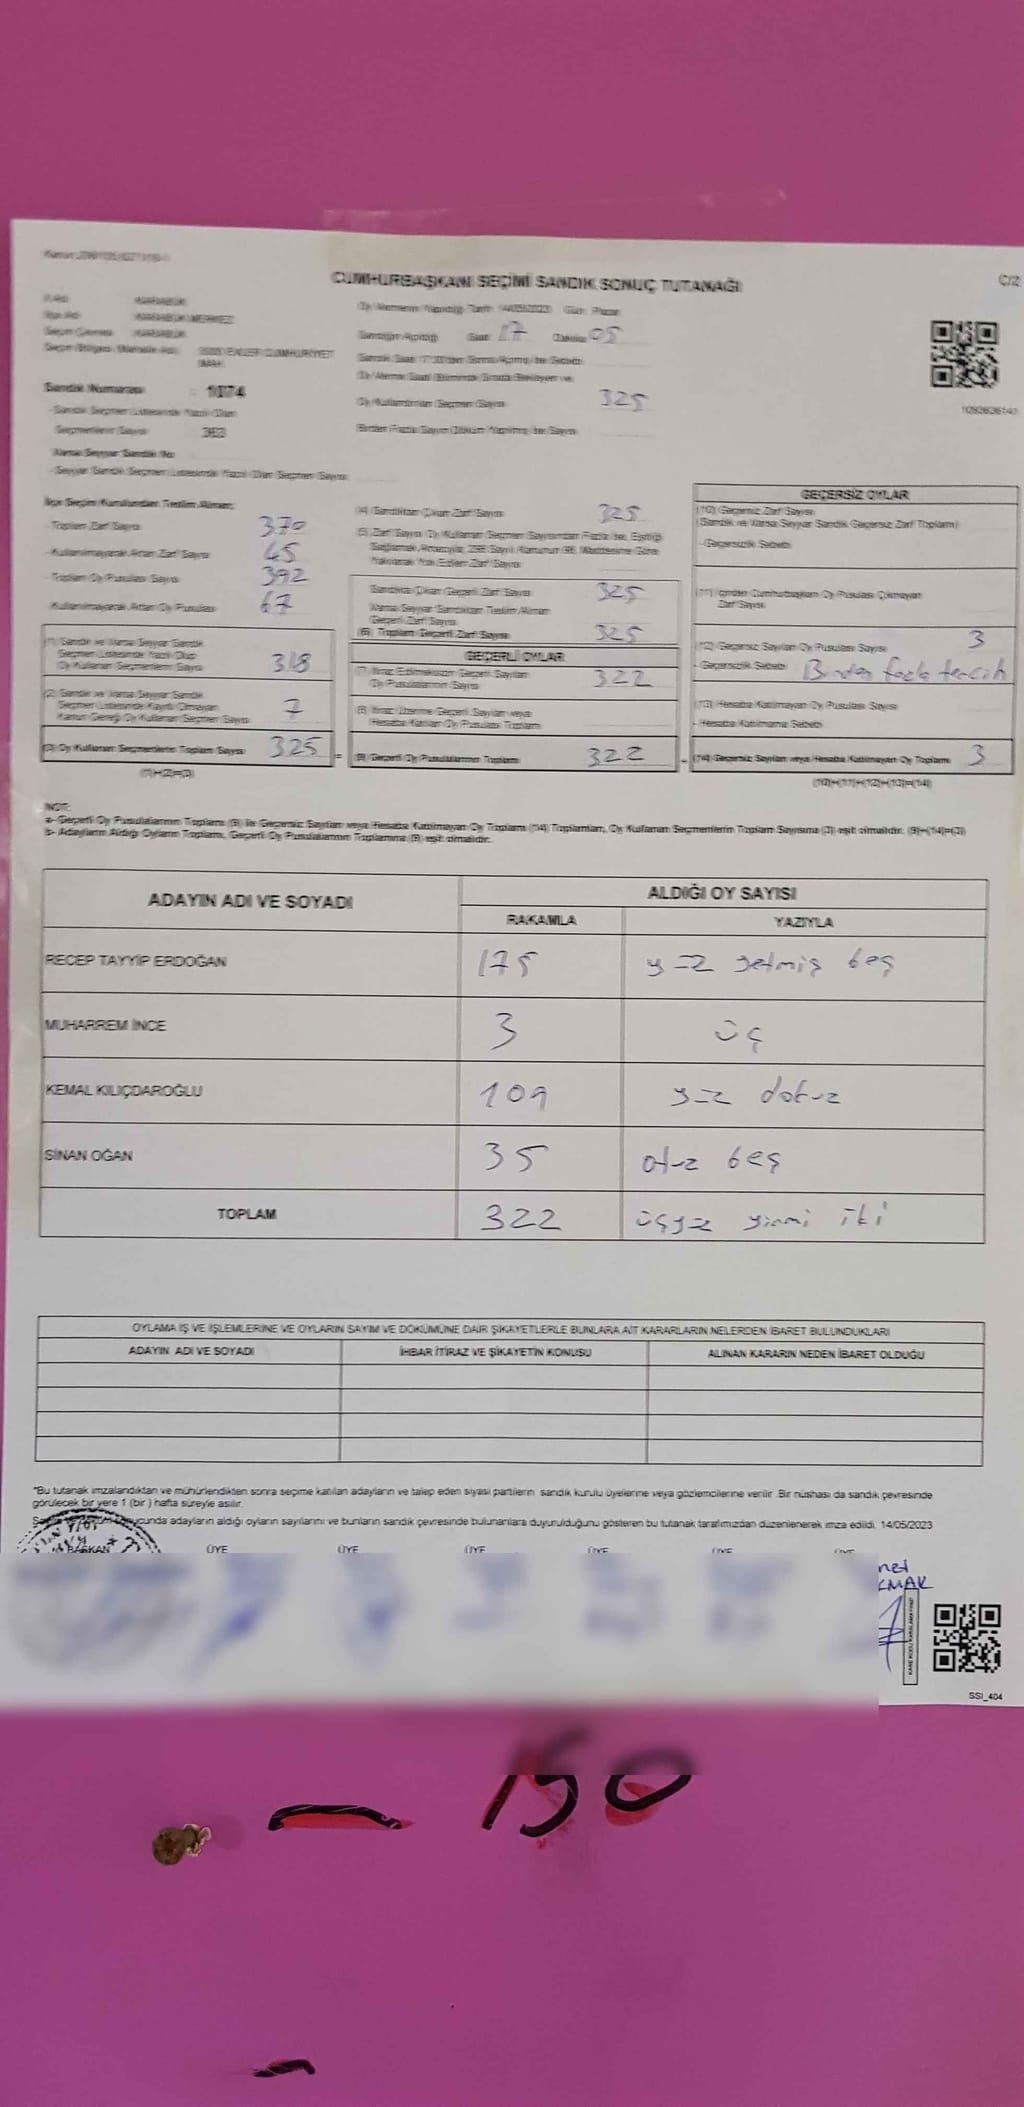 C/2
CUMHURBAŞKANI SEÇİMİ SANDIK SONUÇ TUTANAĞI
İl Adı KARABÜK
İlçe Adı KARABÜK MERKEZ
Seçim Çevresi KARABÜK
Oy Vermenin Yapıldığı Tarih 14/05/2023 Gün Pazar
Sandığın Açıldığı Saat 17 Dakika 05
Sandık Numarası : 1074
Oy Kullandırılan Seçmen Sayısı 325
- Sandık Seçmen Listesinde Yazılı Olan
Seçmenlerin Sayısı
Birden Fazla Sayım Döküm Yapılmış İse Sayısı
Varsa Seyyar Sandık No
- Seyyar Sandık Seçmen Listesinde Yazılı Olan Seçmen Sayısı
İlçe Seçim Kurulundan Teslim Alınan:
- Toplam Zarf Sayısı 370
- Kullanılmayarak Artan Zarf Sayısı 45
- Toplam Oy Pusulası Sayısı 392
- Kullanılmayarak Artan Oy Pusulası 67
(1) Sandık ve Varsa Seyyar Sandık
Seçmen Listesinde Yazılı Olup
Oy Kullanan Seçmenlerin Sayısı 318
(2) Sandık ve Varsa Seyyar Sandık
Seçmen Listesinde Kayıtlı Olmayan
Kanun Gereği Oy Kullanan Seçmen Sayısı 7
(3) Oy Kullanan Seçmenlerin Toplam Sayısı 325
(1)+(2)=(3)
(4) Sandıktan Çıkan Zarf Sayısı 325
(5) Zarf Sayısı Oy Kullanan Seçmen Sayısından Fazla ise, Eşitliği
Sağlamak Amacıyla, 298 Sayılı Kanunun 98. Maddesine Göre
Yakılarak Yok Edilen Zarf Sayısı
Sandıkta Çıkan Geçerli Zarf Sayısı 325
Varsa Seyyar Sandıktan Teslim Alınan
Geçerli Zarf Sayısı
(6) Toplam Geçerli Zarf Sayısı 325
GEÇERLİ OYLAR
(7) İtiraz Edilmeksizin Geçerli Sayılan
Oy Pusulalarının Sayısı 322
(8) İtiraz Üzerine Geçerli Sayılan veya
Hesaba Katılan Oy Pusulası Toplamı
(9) Geçerli Oy Pusulalarının Toplamı 322
GEÇERSİZ OYLAR
(10) Geçersiz Zarf Sayısı
(Sandık ve Varsa Seyyar Sandık Geçersiz Zarf Toplamı)
- Geçersizlik Sebebi
(11) İçinden Cumhurbaşkanı Oy Pusulası Çıkmayan
Zarf Sayısı
(12) Geçersiz Sayılan Oy Pusulası Sayısı 3
- Geçersizlik Sebebi Birden fazla tercih
(13) Hesaba Katılmayan Oy Pusulası Sayısı
- Hesaba Katılmama Sebebi
(14) Geçersiz Sayılan veya Hesaba Katılmayan Oy Toplamı 3
(10)+(11)+(12)+(13)=(14)
NOT:
a- Geçerli Oy Pusulalarının Toplamı (9) ile Geçersiz Sayılan veya Hesaba Katılmayan Oy Toplamı (14) Toplamları, Oy Kullanan Seçmenlerin Toplam Sayısına (3) eşit olmalıdır. (9)+(14)=(3)
b- Adayların Aldığı Oyların Toplamı, Geçerli Oy Pusulalarının Toplamına (9) eşit olmalıdır.
ADAYIN ADI VE SOYADI ALDIĞI OY SAYISI
RAKAMLA YAZIYLA
RECEP TAYYİP ERDOĞAN 175 yüz yetmiş beş
MUHARREM İNCE 3 üç
KEMAL KILIÇDAROĞLU 109 yüz dokuz
SİNAN OĞAN 35 otuz beş
TOPLAM 322 üçyüz yirmi iki
OYLAMA İŞ VE İŞLEMLERİNE VE OYLARIN SAYIM VE DÖKÜMÜNE DAİR ŞİKAYETLERLE BUNLARA AİT KARARLARIN NELERDEN İBARET BULUNDUKLARI
ADAYIN ADI VE SOYADI İHBAR İTİRAZ VE ŞİKAYETİN KONUSU ALINAN KARARIN NEDEN İBARET OLDUĞU
*Bu tutanak imzalandıktan ve mühürlendikten sonra seçime katılan adayların ve talep eden siyasi partilerin sandık kurulu üyelerine veya gözlemcilerine verilir. Bir nüshası da sandık çevresinde
görülecek bir yere 1 (bir ) hafta süreyle asılır.
adayların aldığı oyların sayılarını ve bunların sandık çevresinde bulunanlara duyurulduğunu gösteren bu tutanak tarafımızdan düzenlenerek imza edildi. 14/05/2023
BAŞKAN ÜYE ÜYE ÜYE ÜYE ÜYE ÜYE
SSI_404
150